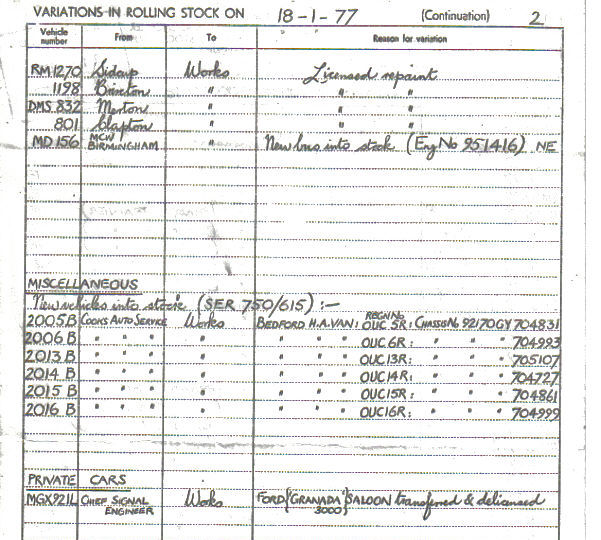 VARIATIONS IN ROLLING STOCK ON 18-1-77 (Continuation) 2
Vehicle number From To Reason for variation
RM 1270 Sidcup Works Licensed repaint
1198 Brixton " " "
DMS 832 Merton " " "
801 Clapton " " "
MD 156 MCW BIRMINGHAM " New bus into stock (Eng No 951416) NE
MISCELLANEOUS
New vehicles into stock (SER 750/615) :—
2005 B COOKS AUTO SERVICE Works BEDFORD H.A.VAN: REGN No OUC 5R: CHASSIS No 92170GY 704831
2006 B " " " " " " " OUC 6R: " " " 704993
2013 B " " " " " " " OUC 13R: " " " 705107
2014 B " " " " " " " OUC 14R: " " " 704727
2015 B " " " " " " " OUC 15R: " " " 704861
2016 B " " " " " " " OUC 16R: " " " 704999
PRIVATE CARS
MGX 921L CHIEF SIGNAL ENGINEER Works FORD (GRANADA 3000) SALOON transferred & delicensed